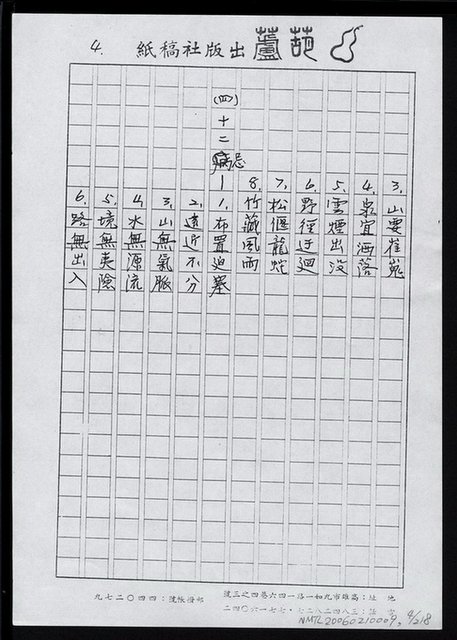 葫蘆出版社稿紙
4.
3.山要崔嵬
4.泉宜洒落
5.雲煙出没
6.野徑迂迴
7.松偃龍蛇
8.竹藏風雨
(四)十二病忌—1.布置迫塞
2.遠近不分
3.山無氣脈
4.水無源流
5.境無夷險
6.路無出入
地址：高雄市九如一路一四六巷四之三號
電話：三八四二八二七・七七一六〇四二
郵撥帳號：四四〇二七九
NMTL20060210009, 4/218